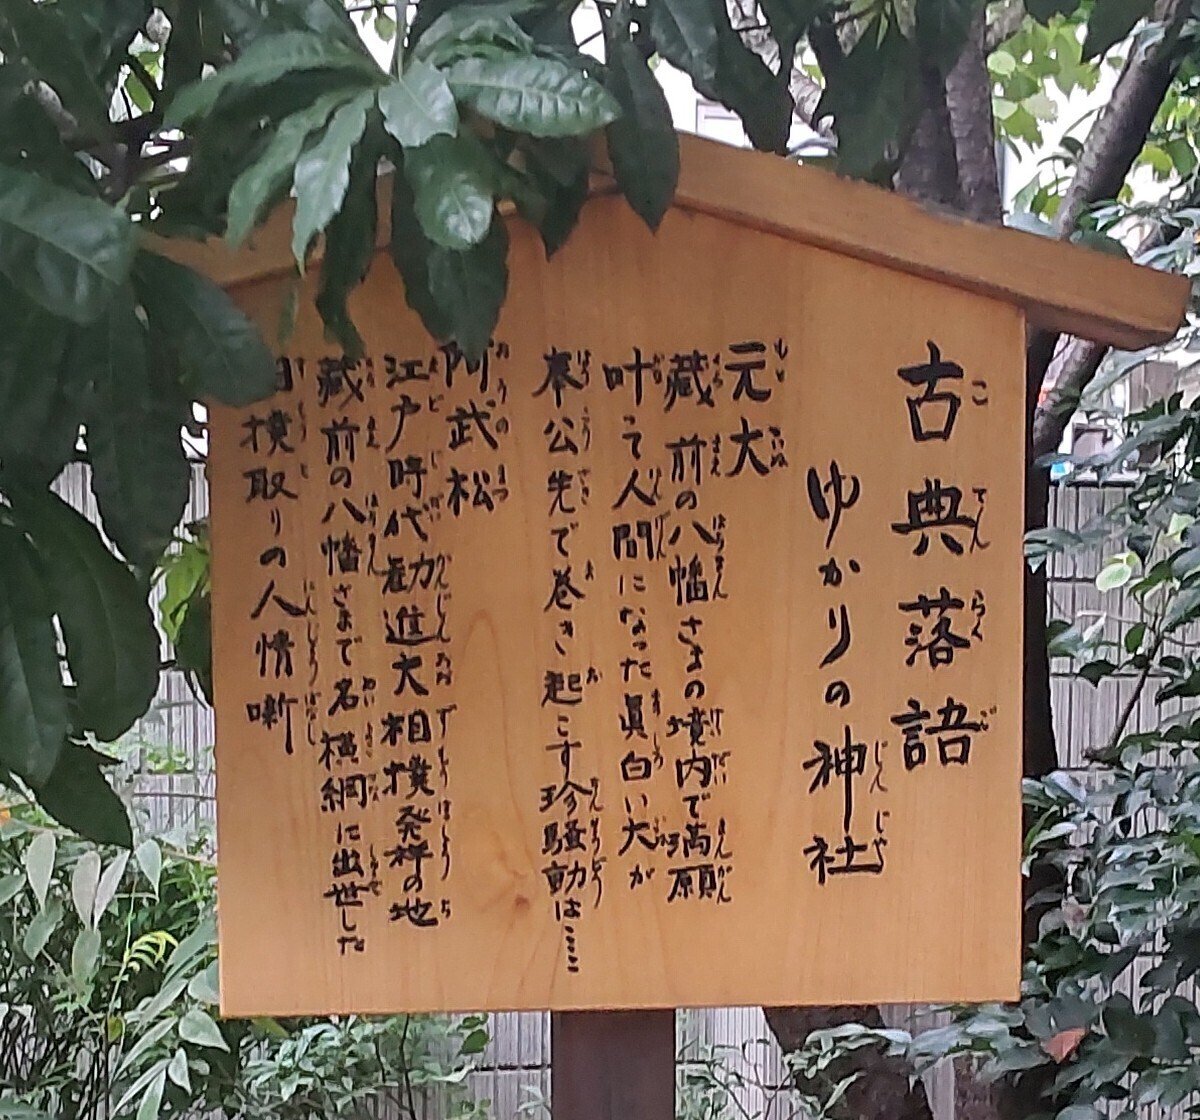 古典落語
ゆかりの神社
元犬
蔵前の八幡さまの境内で満願
叶って人間になった眞白い犬が
奉公先で巻き起こす珍騒動は…
阿武松
江戸時代勧進大相撲発祥の地
蔵前の八幡さまで名横綱に出世した
相撲取りの人情噺